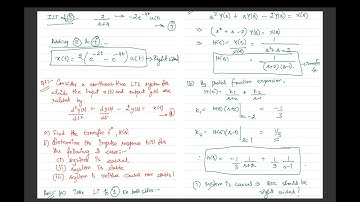 ILT of
2/(s+4) → -2e^-4t u(t)
Adding & 
x(t) = 2(e^-t - e^-4t) u(t)
Consider a continuous-time LTI system for
which the input x(t) and output y(t) are
related by
d²y(t)/dt² + dy(t)/dt - 2y(t) = x(t)
a) Find the transfer fn, H(s)
b) Determine the impulse response h(t) for
the following 3 cases:-
(i) system is causal
(ii) system is stable
(iii) system is neither causal nor stable
(a) Take LT of 1 on both sides:-
s²Y(s) + sY(s) - 2Y(s) = X(s)
⇒ (s²+s-2) Y(s) = X(s)
H(s) = Y(s)/X(s) = 1/(s²+s-2)
H(s) = 1/((s+2)(s-1))
(b) By partial fraction expansion,
H(s) = k1/(s+2) + k2/(s-1)
k1 = H(s)(s+2)|s=-2 = -1/3
k2 = H(s)(s-1)|s=1 = 1/3
∴ H(s) = -1/3 1/(s+2) + 1/3 1/(s-1)
(i) system is causal → ROC should be
right sided